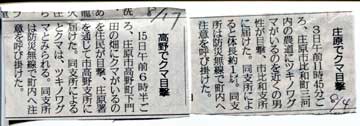 庄原でクマ目撃
3日午前11時45分ご
ろ、庄原市比和町三河
内の農道にツキノワグ
マがいるのを近くの男
性が目撃、市比和支所
に届けた。同支所によ
ると体長約1㍍。同支
所は防災無線で町内へ
注意を呼び掛けた。
8/4
高野でクマ目撃
15日午前6時半ご
ろ、庄原市高野町下門
田の畑にクマがいるの
を住民が目撃、庄原署
を通じて市高野支所に
届けた。同支所による
とクマは、ツキノワグ
マとみられる。同支所
は防災無線で町内へ注
意を呼び掛けた。
8/17